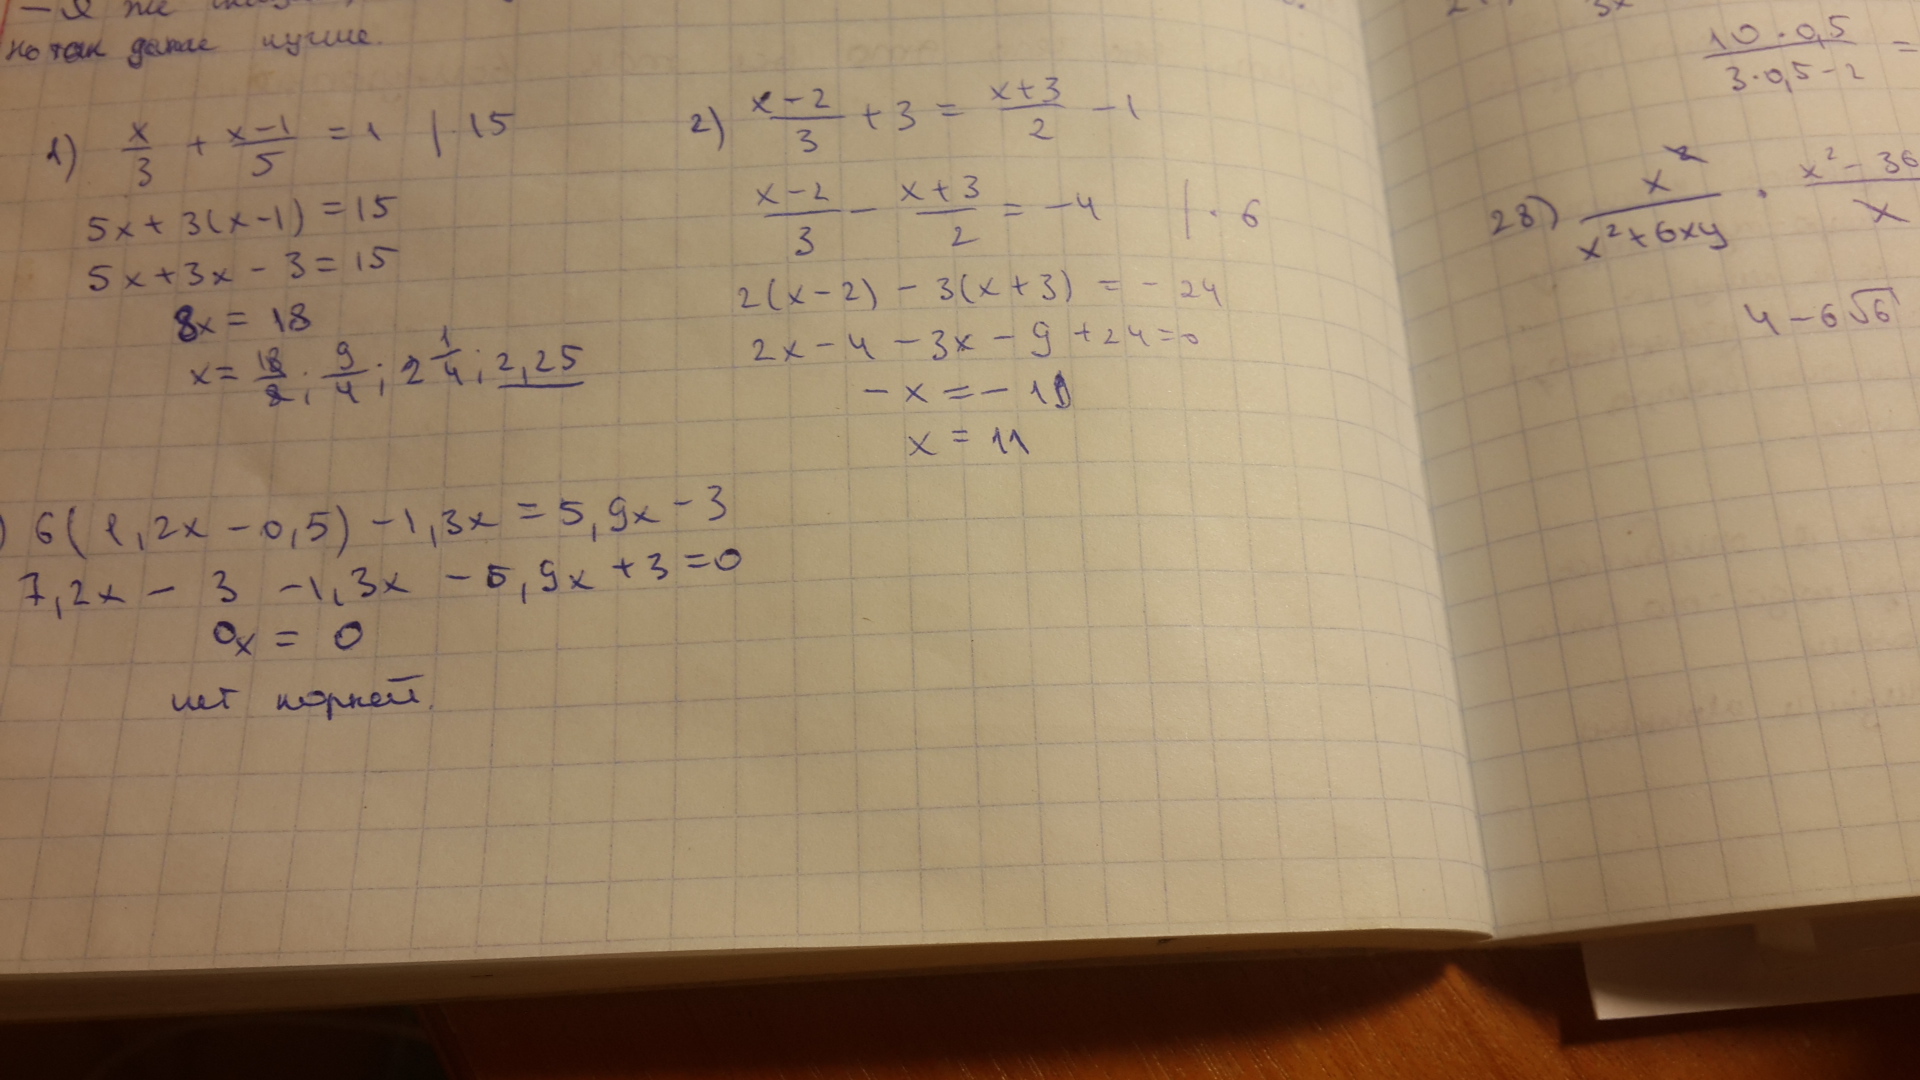 но так даже лучше.
1) x/3 + (x-1)/5 = 1 | · 15
5x + 3(x-1) = 15
5x + 3x - 3 = 15
8x = 18
x = 18/8; 9/4; 2 1/4; 2,25
2) (x-2)/3 + 3 = (x+3)/2 - 1
(x-2)/3 - (x+3)/2 = -4 | · 6
2(x-2) - 3(x+3) = -24
2x - 4 - 3x - 9 + 24 = 0
-x = -11
x = 11
) 6(1,2x - 0,5) - 1,3x = 5,9x - 3
7,2x - 3 - 1,3x - 5,9x + 3 = 0
0x = 0
нет корней.
3x
(10 · 0,5)/(3 · 0,5 - 2) =
28) x²/(x² + 6xy) · (x² - 36)/x
4 - 6√6